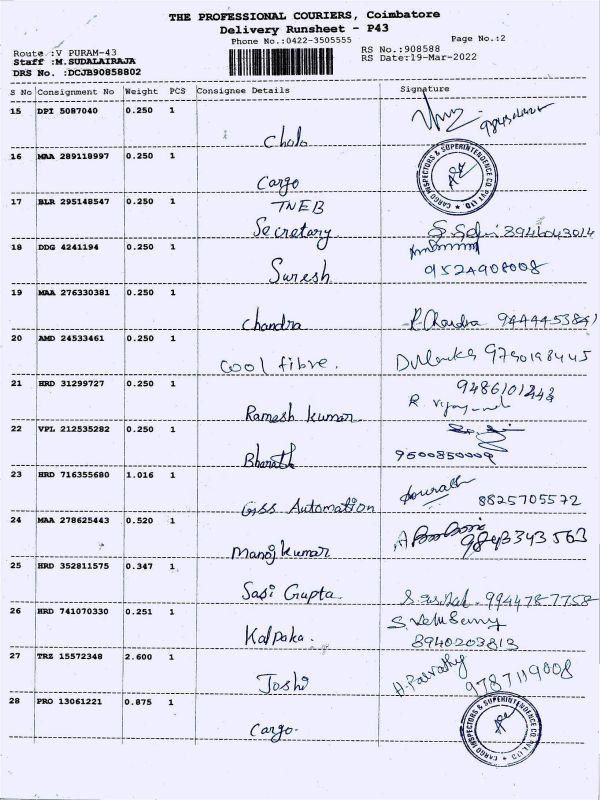 THE PROFESSIONAL COURIERS, Coimbatore
Delivery Runsheet - P43
Phone No.:0422-3505555
Page No.:2
Route :V PURAM-43
RS No.:908588
Staff :M.SUDALAIRAJA
RS Date:19-Mar-2022
DRS No. :DCJB90858802
S No Consignment No Weight PCS Consignee Details Signature
15 DPI 5087040 0.250 1
Chola
16 MAA 289118997 0.250 1
CARGO INSPECTORS & SUPERINTENDENCE CO PVT LTD
Cargo
17 BLR 295148547 0.250 1
TNEB
Secretary
18 DDG 4241194 0.250 1
Suresh 9524908008
19 MAA 276330381 0.250 1
Chandra P. Chandra
20 AMD 24533461 0.250 1
Cool fibre.
21 HRD 31299727 0.250 1
9486101243
Ramesh kumar R.
22 VPL 212535282 0.250 1
Bharath 9600850009
23 HRD 716355680 1.016 1
GSS Automation 8825705572
24 MAA 278625443 0.520 1
Manoj kumar
25 HRD 352811575 0.347 1
Sasi Gupta
26 HRD 741070330 0.251 1
Kalpaka. 8940203813
27 TRZ 15572348 2.600 1
Joshi H. Parvathy 9787119008
28 PRO 13061221 0.875 1
CARGO INSPECTORS & SUPERINTENDENCE CO PVT LTD
Cargo.